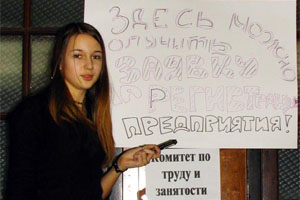 ЗДЕСЬ МОЖНО
ПОЛУЧИТЬ
ЗАЯВКИ
ПРЕДПРИЯТИЯ!
Комитет по
труду и
занятости